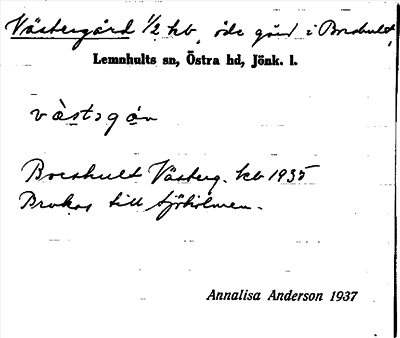 Västergård 1/2 kb, öde gård i Boeshult,
Lemnhults sn, Östra hd, Jönk. l.
västəgåɳ
Boeshult Västerg. kb 1935
Brukas till Sjöholmen.
Annalisa Anderson 1937